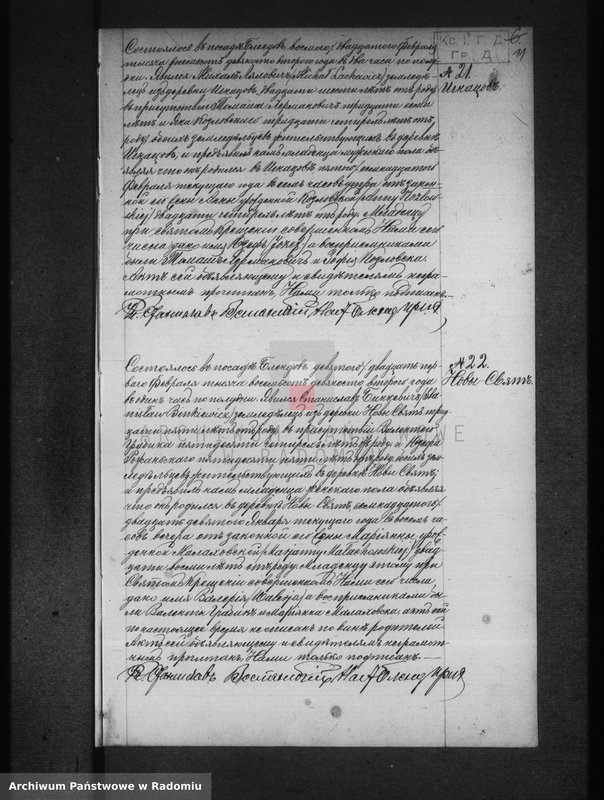 6
11
Кс. Г. Г. Д.
Гр. Д.
№ 21.
Игнацовъ.
Состоялось въ посадѣ Блендовъ, восьмого/двадцатого Февраля
тысяча восемьсотъ девяносто второго года въ два часа по полу-
дни. Явился Михаилъ
лецъ изъ деревни Игнацовъ, двадцати шести лѣтъ отъ роду,
въ присутствіи Томаша тридцати семи
лѣтъ и Яна Козловскаго тридцати четырехъ лѣтъ отъ
роду, обоихъ земледѣльцевъ жительствующихъ въ деревнѣ
Игнацовъ, и предъявилъ намъ младенца мужескаго пола объ-
являя что онъ родился въ Игнацовѣ пятого/семнадцатого
Февраля текущаго года въ семь часовъ утра отъ закон-
ной его жены урожденной Козловской
двадцати четырехъ лѣтъ отъ роду. Младенцу
при святомъ крещеніи совершенномъ Нами сего
числа дано имя Юзефъ /Józef/ а воспріемниками
были Томашъ и Козловска.
Актъ сей объявляющему и свидѣтелямъ негра-
мотнымъ прочитанъ, Нами только подписанъ.—
№ 22.
Новы Святъ.
Состоялось въ посадѣ Блендовъ девятого/двадцать пер-
ваго Февраля тысяча восемьсотъ девяносто второго года
въ одинъ часъ по полудни. Явился Станиславъ
земледѣлецъ изъ деревни Новы Святъ трид-
цати пяти лѣтъ отъ роду, въ присутствіи Валентего
пятидесяти четырехъ лѣтъ отъ роду и Юзефа
пятидесяти пяти лѣтъ отъ роду, обоихъ зем-
ледѣльцевъ жительствующихъ въ деревнѣ Новы Святъ;
и предъявилъ намъ младенца женскаго пола объявляя
что онъ родился въ деревнѣ Новы Святъ семнадцатого/
двадцать девятого Января текущаго года въ восемь ча-
совъ вечера отъ законной его жены Маріянны уро-
жденной Малаховской двад-
цати восьми лѣтъ отъ роду. Младенцу этому при
Святомъ Крещеніи совершенномъ Нами сего числа,
дано имя Валерія /Walerja/ а воспріемниками бы-
ли Валентій и Маріянна Малаховска. Актъ сей
по настоящее время не описанъ по винѣ родителей.
Актъ сей объявляющему и свидѣтелямъ неграмот-
нымъ прочитанъ, Нами только подписанъ.—
Archiwum Państwowe w Radomiu